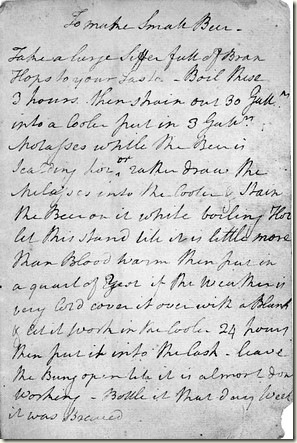 To make Small Beer -
Take a large Siffer full of Bran
Hops to your Taste - Boil these
3 hours. then strain out 30 Gall.ns
into a Cooler put in 3 Gall.ns
Molasses while the Beer is
scalding hot or rather draw the
Molasses into the Cooler & Strain
the Beer on it while boiling Hot
let this stand till it is little more
than Blood warm then put in
a quart of Yest if the Weather is
very Cold cover it over with a Blank
& let it work in the Cooler 24 hours
then put it into the Cask - leave
the Bung open till it is almost done
working - Bottle it that day Week
it was Brewed